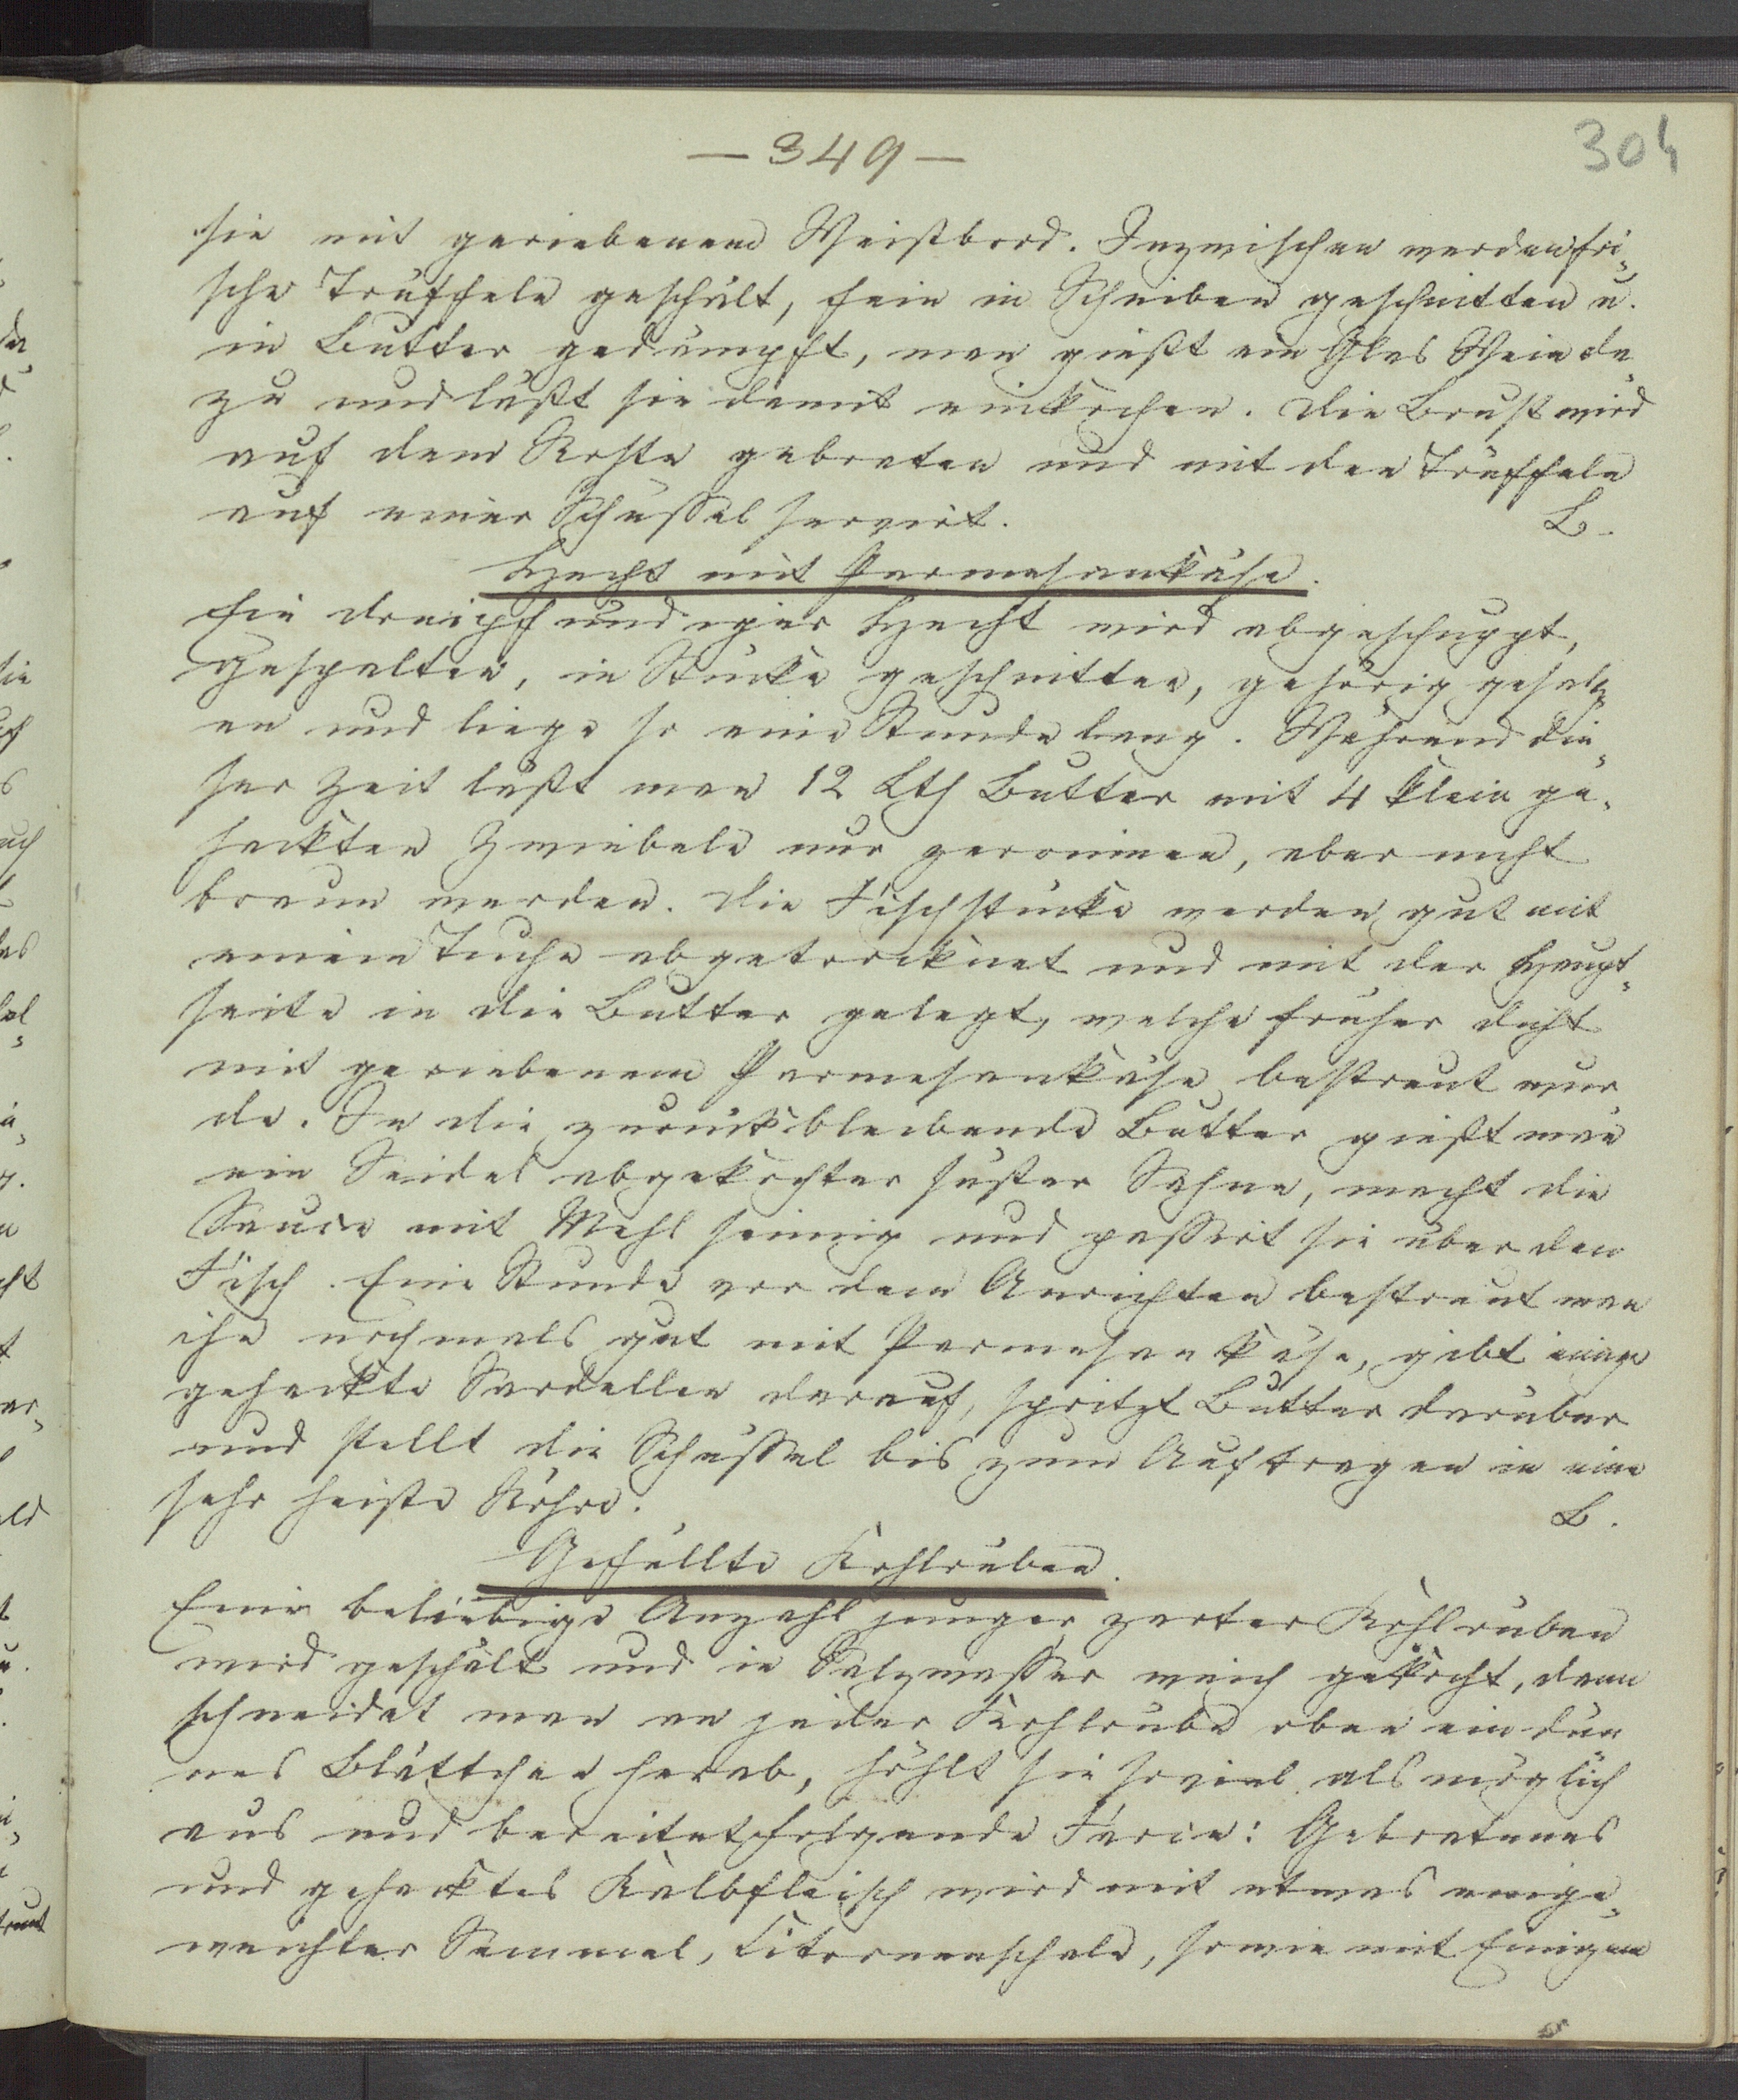 — 349 —
304
sie mit geriebenem Weißbrod. Inzwischen werden fri„
sche Trüffeln geschält, fein in Scheiben geschnitten u.
in Butter gedämpft, man gießt ein Glas Wein da„
zu und läßt sie damit einkochen. Die Brust wird
auf dem Roste gebraten und mit den Trüffeln
auf einer Schüssel servirt. L.
Hecht mit Parmesankäse.
Ein dreipfündiger Hecht wird abgeschuppt,
gespalten, in Stücke geschnitten, gehörig gesalz„
en und liege so eine Stunde lang. Während die„
ser Zeit läßt man 12 Lth Butter mit 4 klein ge„
hackten Zwiebeln nur gerinnen, aber nicht
braun werden. Die Fischstücke werden gut mit
einem Tuche abgetrocknet und mit der Haupt„
seite in die Butter gelegt, welche früher dicht
mit geriebenem Parmesankäse bestreut wur
de. In die zurückbleibende Butter gießt man
ein Seidel abgekochter süßer Sahne, macht die
Sauce mit Mehl seimig und passirt sie über den
Fisch. Eine Stunde vor dem Anrichten bestreut man
ihn nochmals gut mit Parmesankäse, gibt einige
gehackte Sardellen darauf, spritzt Butter darüber
und stellt die Schüssel bis zum Auftragen in eine
sehr heiße Röhre. L.
Gefüllte Kohlrüben.
Eine beliebige Anzahl junger zarter Kohlrüben
wird geschält und in Salzwasser weich gekocht, dann
schneidet man an jeder Kohlrübe oben ein dün
nes Blättchen herab, höhlt sie soviel als möglich
aus und bereitet folgende Farce: Gebratenes
und gehacktes Kalbfleisch wird mit etwas einge„
weichter Semmel, Citronenschale, sowie mit Einigen